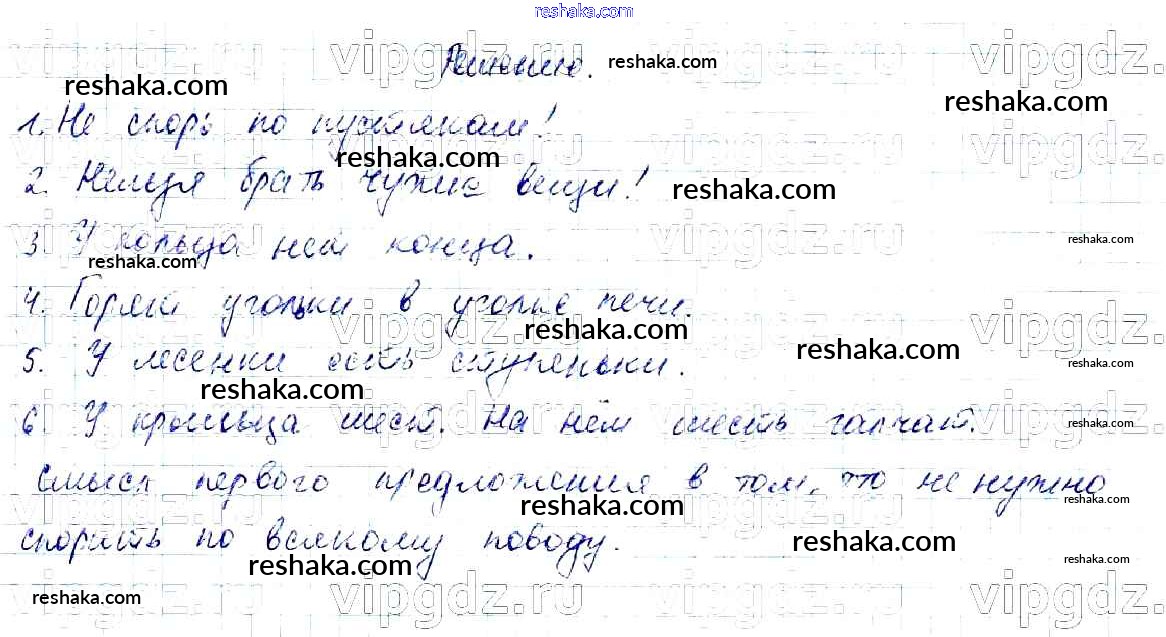 reshaka.com
Решение.
1. Не спорь по пустякам!
2. Нельзя брать чужие вещи!
3. У кольца нет конца.
4. Горят угольки в уголке печи.
5. У лесенки есть ступеньки.
6. У крыльца шест. На нём шесть галчат.
Смысл первого предложения в том, что не нужно
спорить по всякому поводу.
vipgdz.ru
reshaka.com